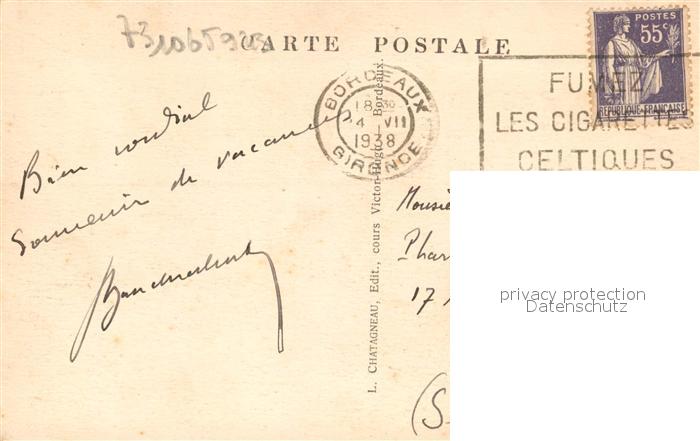 731065923
CARTE POSTALE
POSTES
55c
RÉPUBLIQUE FRANÇAISE
BORDEAUX
18 30
4 - VII
1938
GIRONDE
FUMEZ
LES CIGARETTES
CELTIQUES
Bien cordial
Souvenir de vacances
L. CHATAGNEAU, Edit., cours Victor-Hugo - Bordeaux.
Monsie
Phar
17
(S
privacy protection
Datenschutz